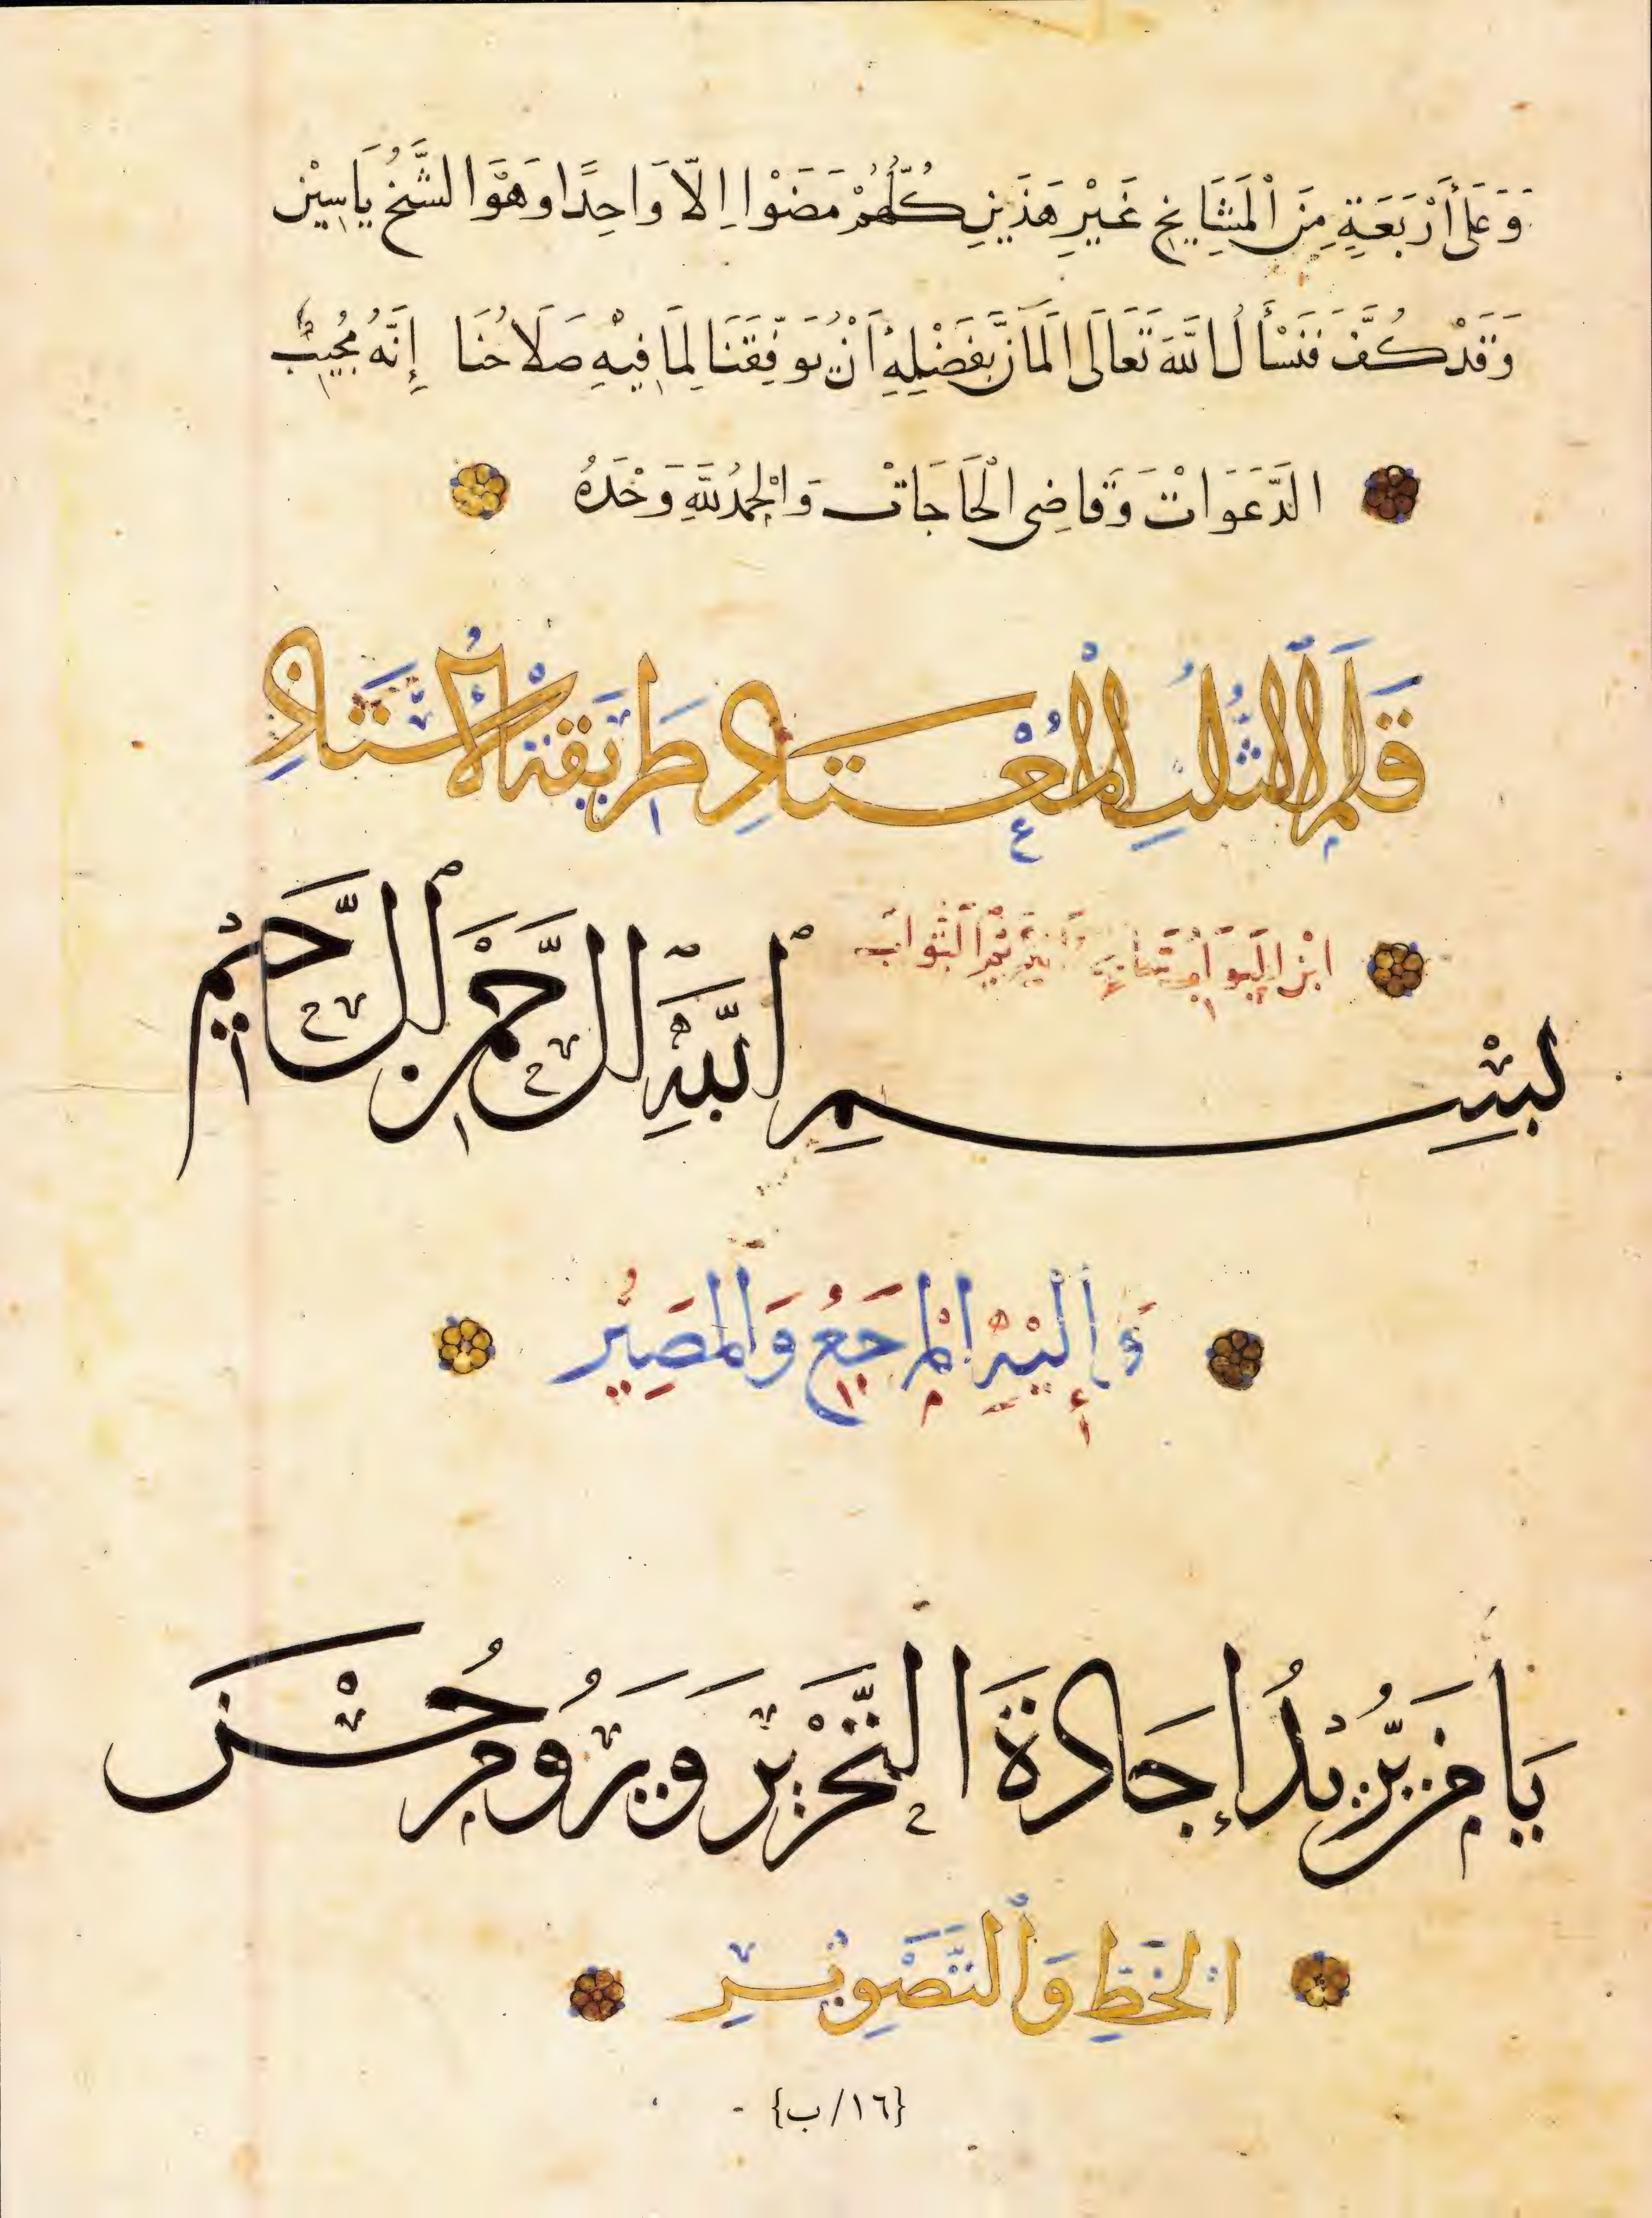 وَعَلَى أَرْبَعَةٍ مِنَ الْمَشَايِخِ غَيْرِ هَذَيْنِ كُلُّهُمْ مَضَوْا اِلَّا وَاحِدًا وَهْوَ الشَّيْخُ يَاسِيْن
وَقَدْ كُفَّ فَنَسْأَلُ اللّٰهَ تَعَالَى الْمَانَّ بِفَضْلِهِ أَنْ يُوَفِّقَنَا لِمَا فِيْهِ صَلَاحُنَا إِنَّهُ مُجِيْبُ
الدَّعَوَاتْ وَقَاضِى الْحَاجَاتْ وَالْحَمْدُ لِلّٰهِ وَحْدَهُ
قَلَمُ الثُّلُثِ الْمُعْتَادِ طَرِيقَةُ الْأُسْتَاذِ
ابْنِ الْبَوَّابِ الثَّوَابَ
بِسْمِ اللّٰهِ الرَّحْمٰنِ الرَّحِيْمِ
وَإِلَيْهِ الْمَرْجَعُ وَالْمَصِيْرُ
يَا مَنْ يُرِيْدُ إِجَادَةَ التَّحْرِيْرِ وَيَرُومُ حُسْنَ
الْخَطِّ وَالتَّصْوِيْرِ
{١٦/ب}